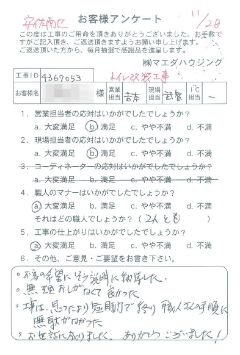 安佐南区
お客様アンケート
11/28
この度は工事のご用命を頂きありがとうございました。お手数で
すがご記入頂き、ご返送頂きますようお願い申し上げます。
ご返送頂いた方から、毎月抽選で感謝品を進呈します。
㈱マエダハウジング
工事ID 4367053 トイレ改装工事
お客様名 様 営業担当 現場担当 IC担当
1. 営業担当者の応対はいかがでしたでしょうか?
a. 大変満足 b. 満足 c. やや不満 d. 不満
3. コーディネーターの応対はいかがでしたでしょうか?
a. 大変満足 b. 満足 c. やや不満 d. 不満
4. 職人のマナーはいかがでしたでしょうか?
a. 大変満足 b. 満足 c. やや不満 d. 不満
それはどの職人でしょうか? (2人とも)
5. 工事の仕上がりはいかがでしたでしょうか?
a. 大変満足 b. 満足 c. やや不満 d. 不満
6. その他、ご意見・ご要望をお書き下さい。
無理がなくて良かった
工事は思ったより短時間で終り 職人さんの手順に
無駄がなかった
お世話になりました。ありがとうございました!